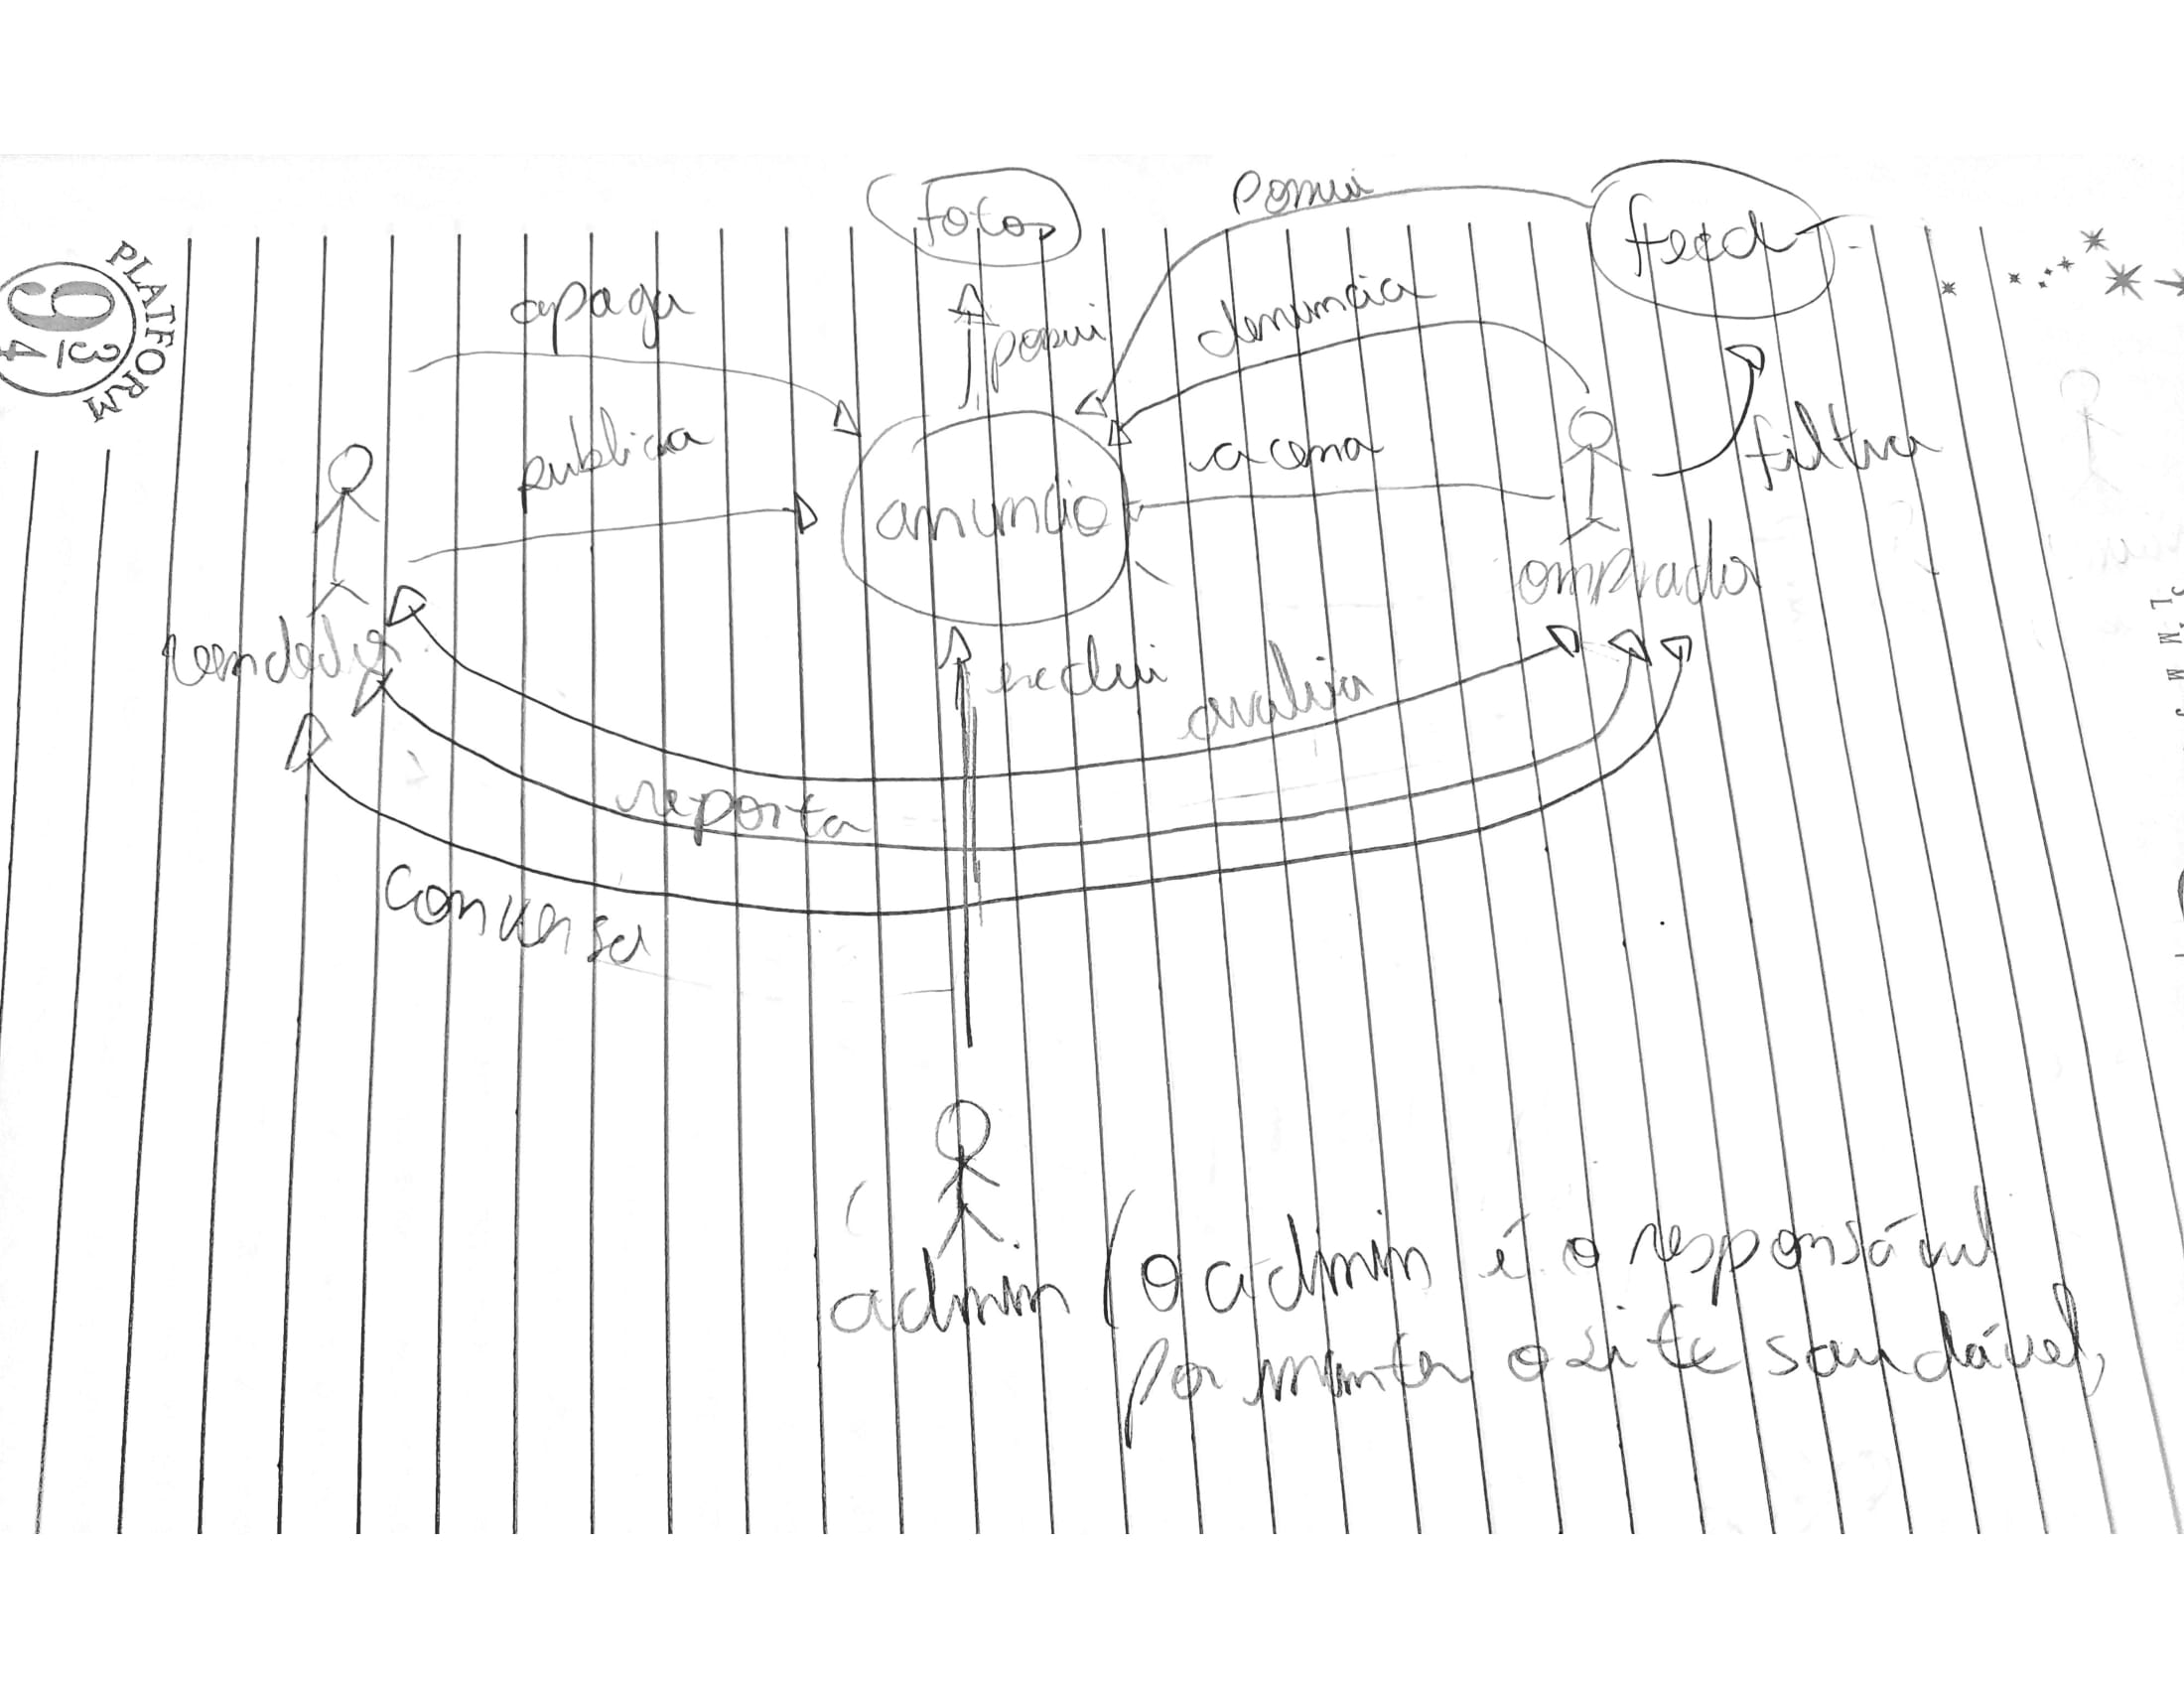 PLATFORM
9 3/4
fotos
possui
feed
apaga
possui
denuncia
publica
acessa
filtra
anuncio
comprador
vendedor
exclui
avalia
reporta
conversa
admin (o admin é o responsável
por manter o site saudável)